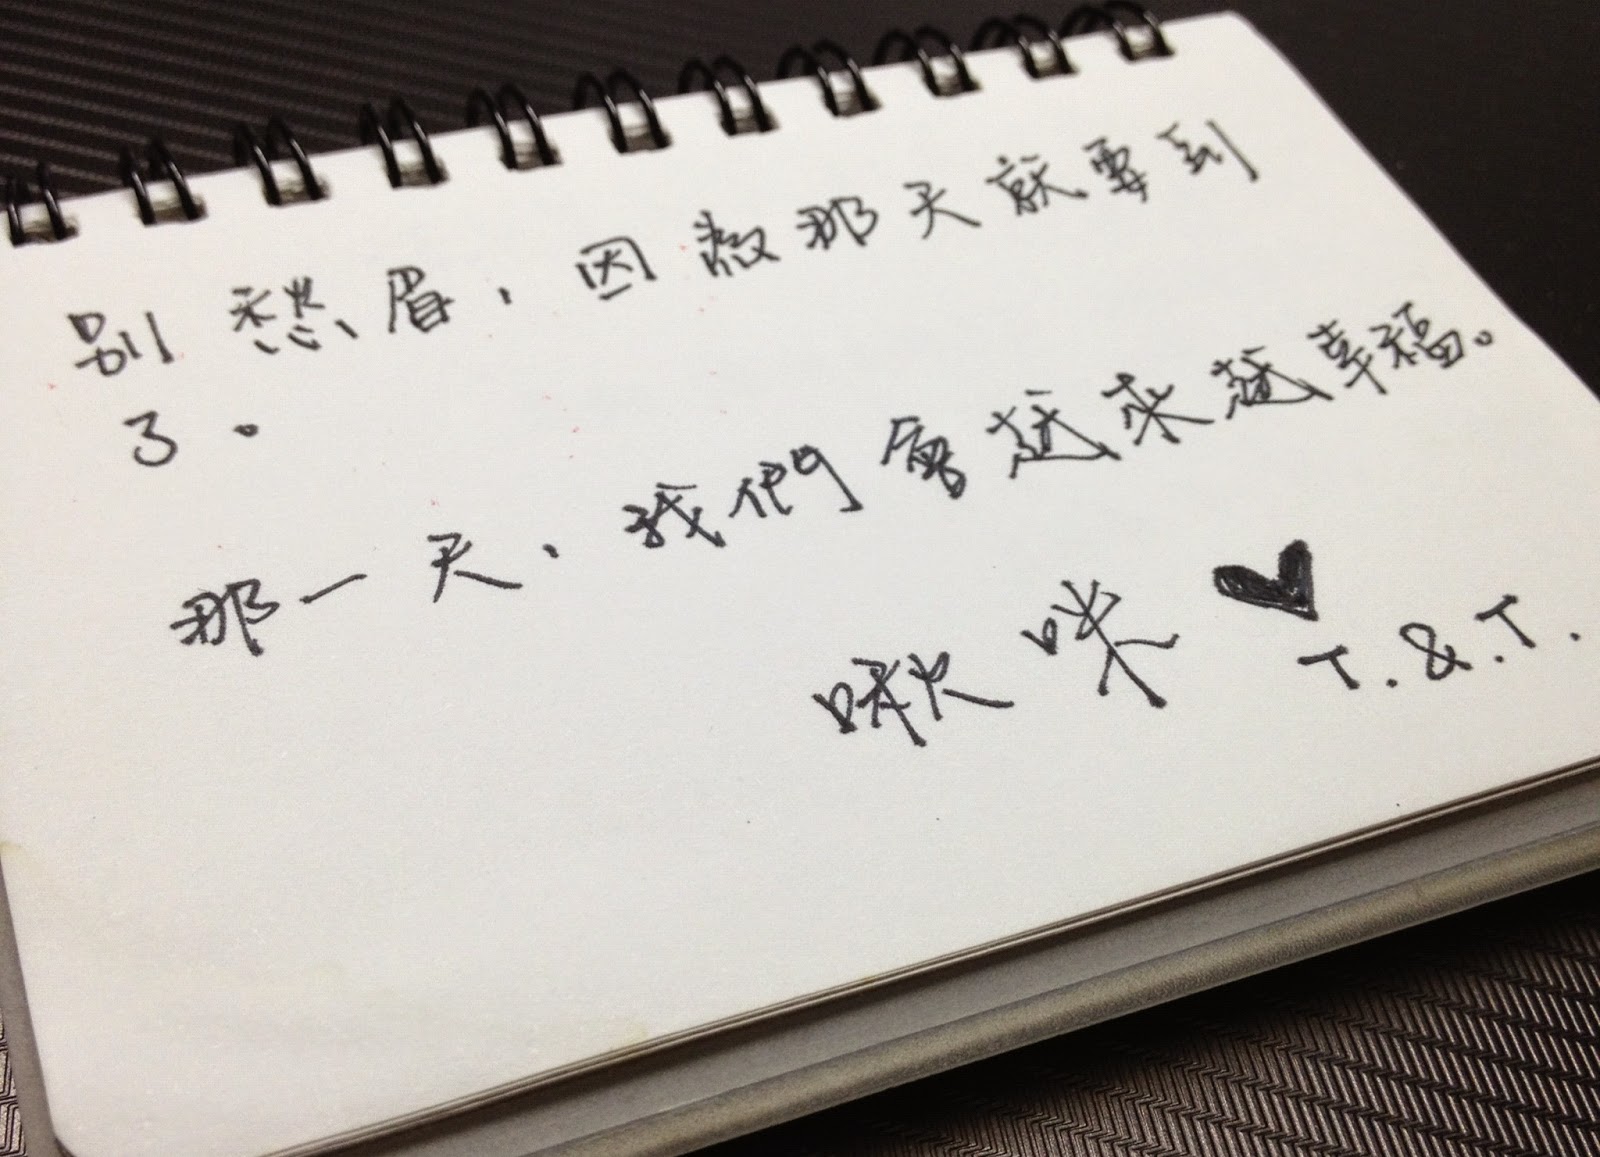 別愁眉，因為那天就要到
了。
那一天，我們會越來越幸福。
啾咪♥
T.&.T.